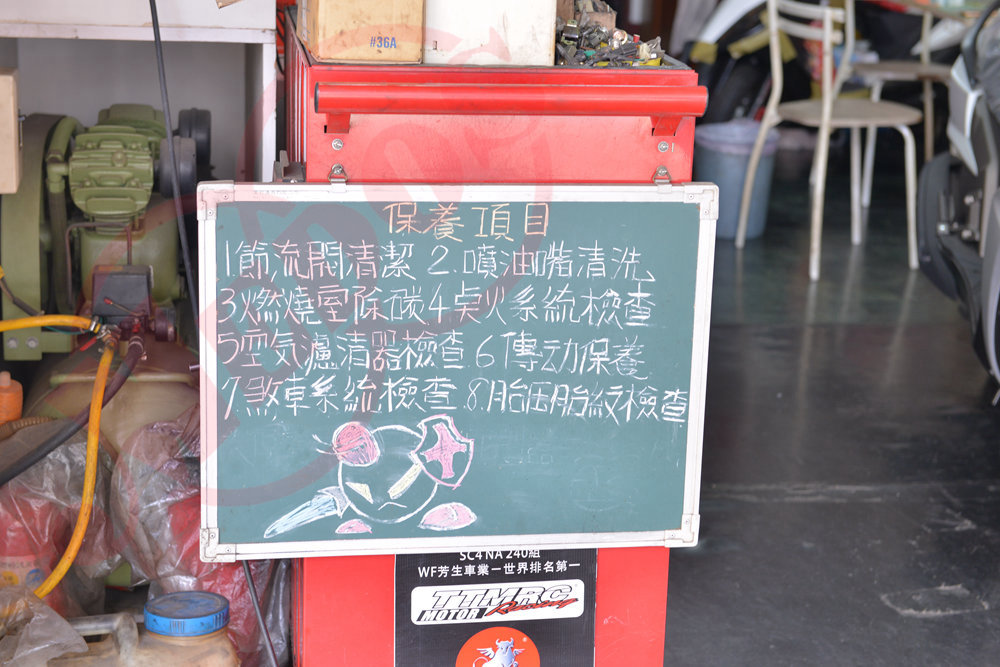 #36A
保養項目
1.節流閥清潔 2.噴油嘴清洗
3.燃燒室除碳 4.桌火系統檢查
5.空気濾清器檢查 6.傳动保養
7.煞車系統檢查 8.胎压胎紋檢查
SC4 NA 240組
WF芳生車業－世界排名第一
TTMRC
MOTOR Racing